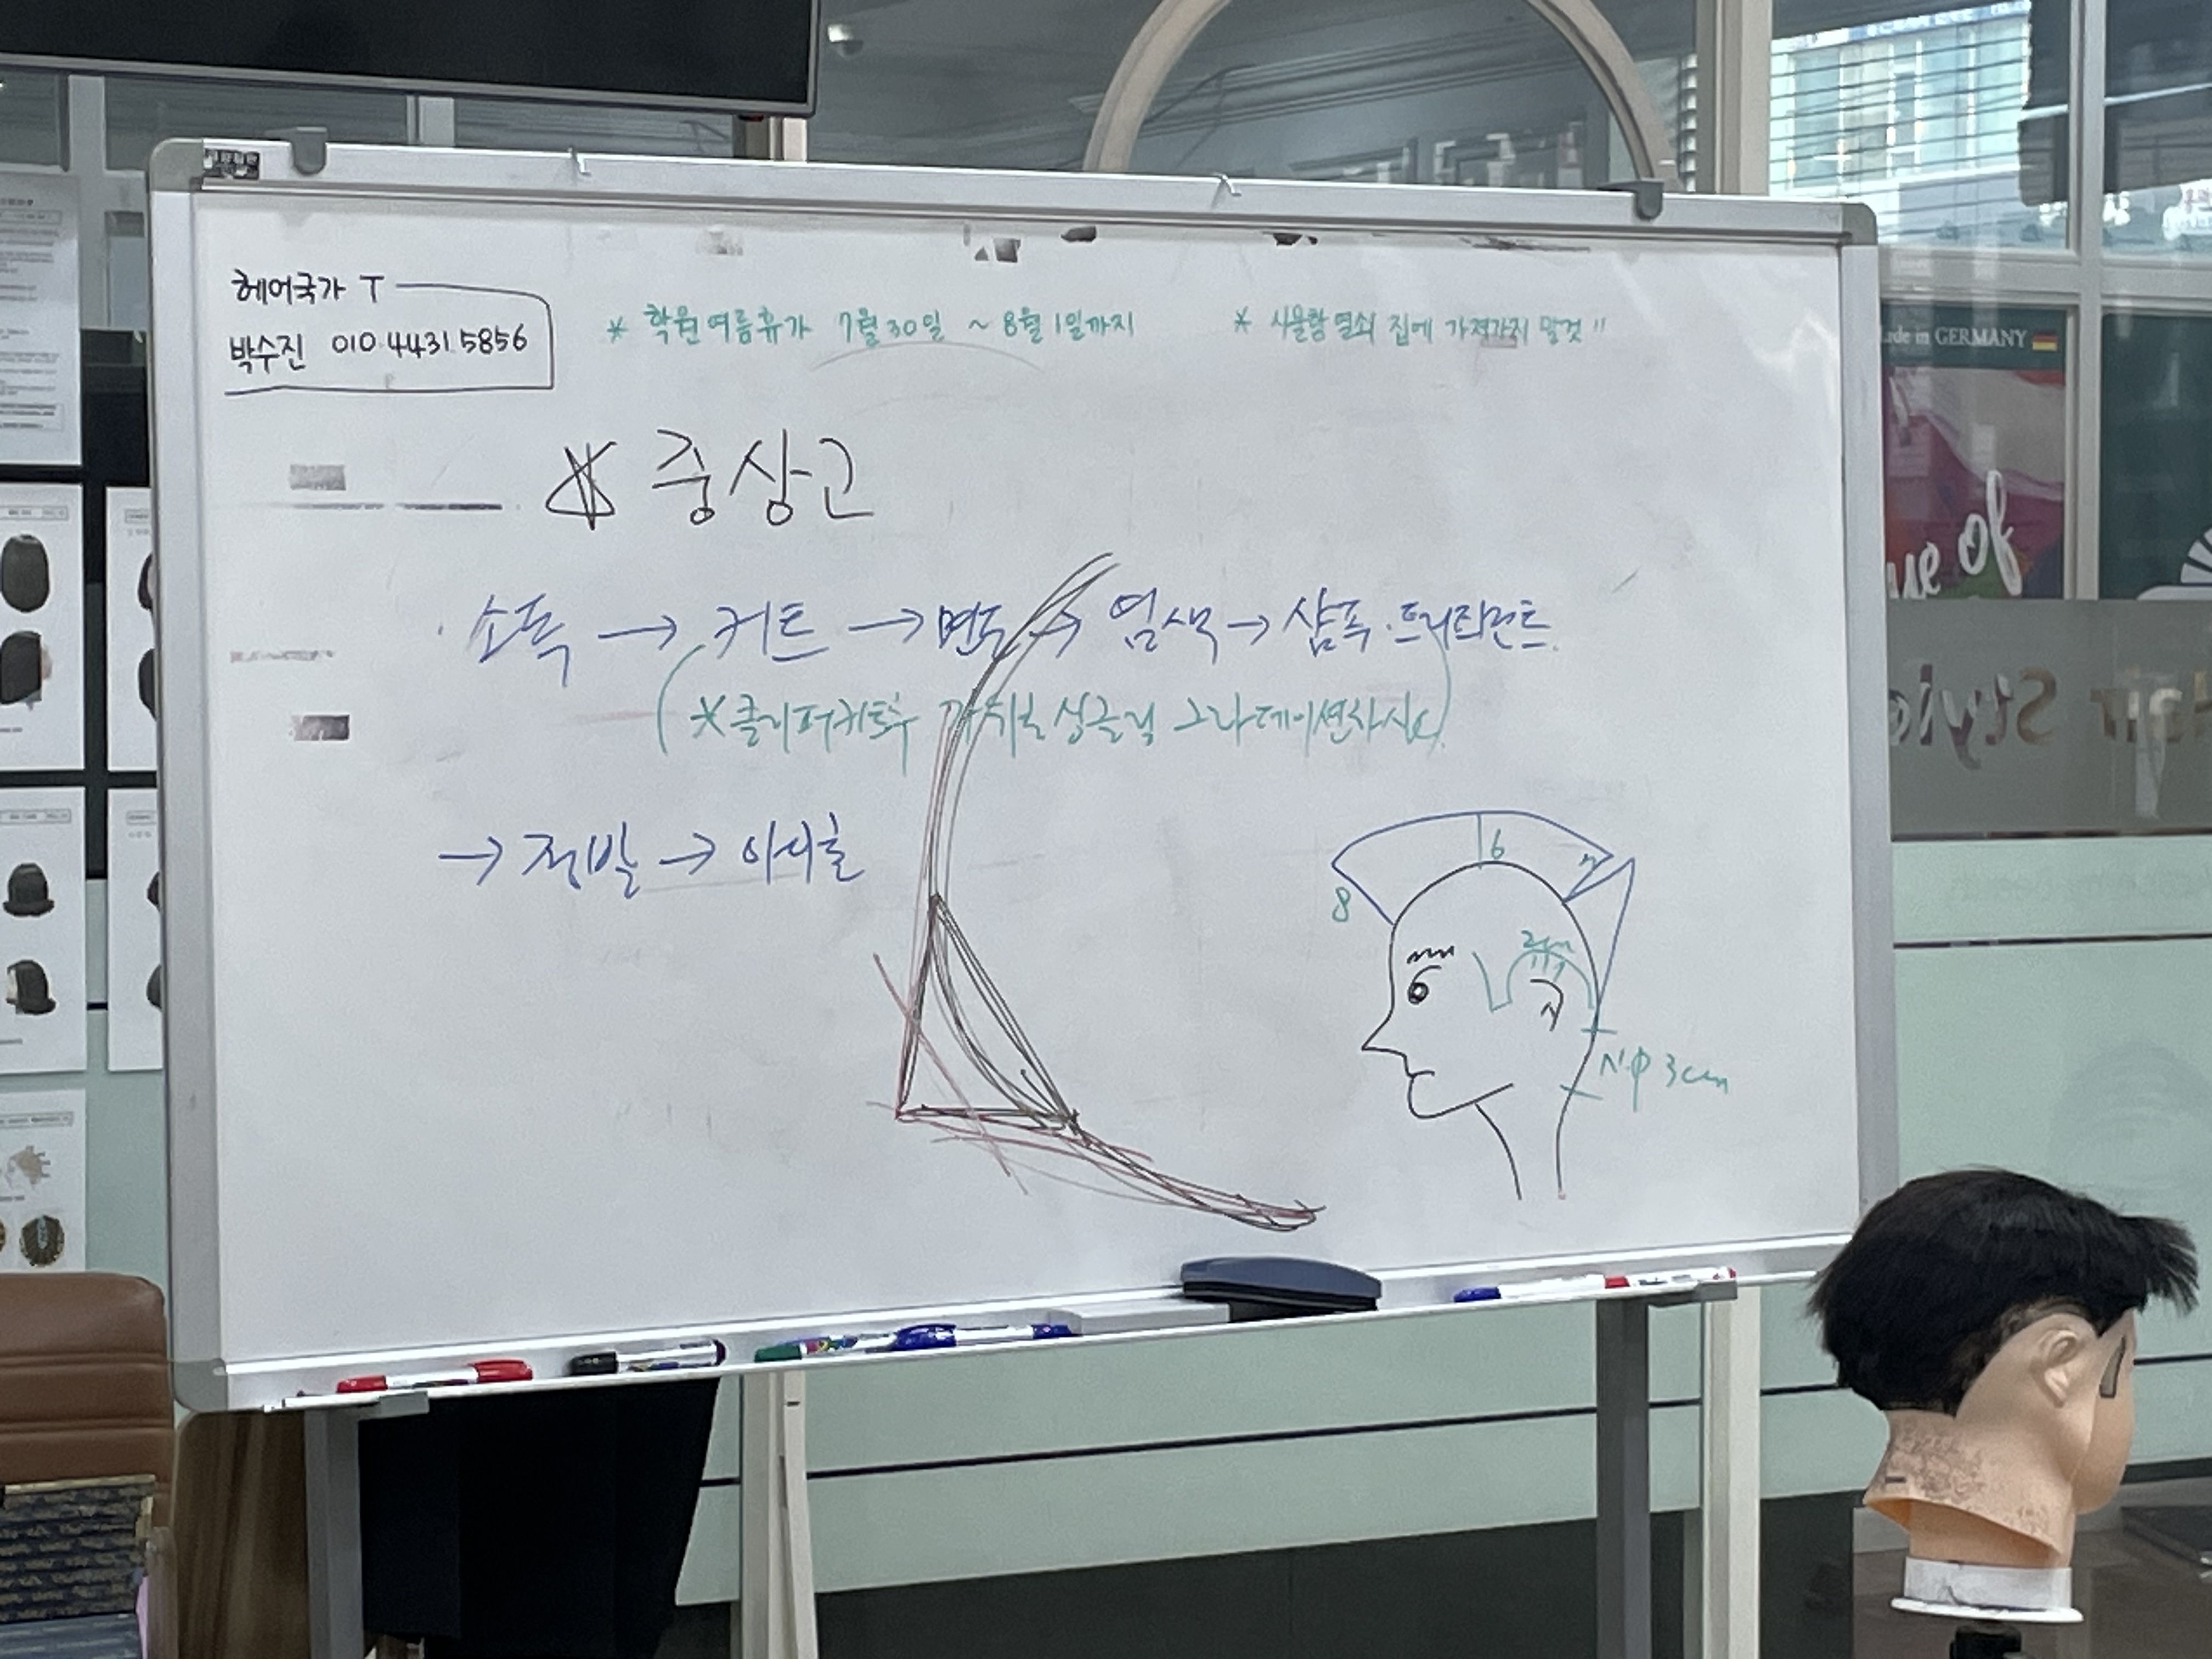 헤어국가 T
박수진 010.4431.5856
* 학원여름휴가 7월30일 ~ 8월1일까지
* 사물함열쇠 집에 가져가지 말것!!
중상고
소독 → 커트 → 면도 → 염색 → 샴푸·트리트먼트.
(*클리퍼커트후 싱글링 그라데이션하시오)
→ 정발 → 아이론
6
7
8
2cm
N.P 3cm
Made in GERMANY
of
Hair Style